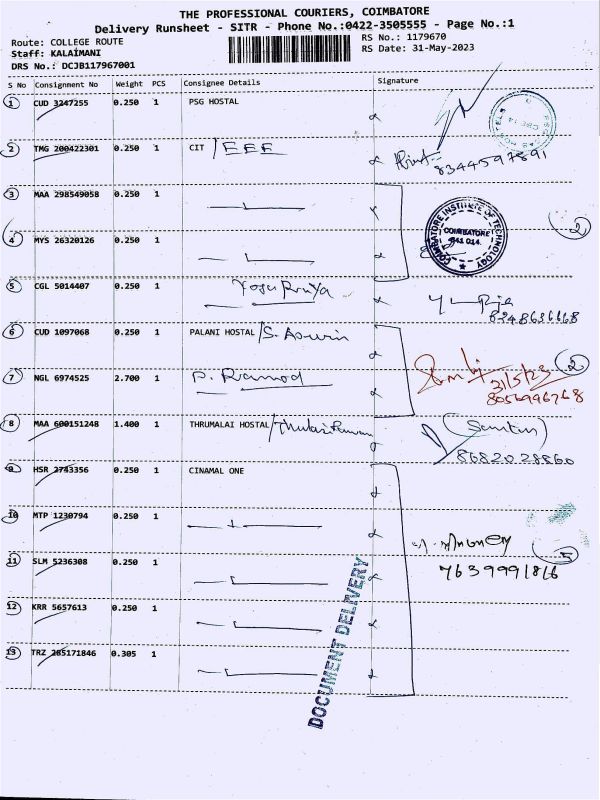 THE PROFESSIONAL COURIERS, COIMBATORE
Delivery Runsheet - SITR - Phone No.:0422-3505555 - Page No.:1
Route: COLLEGE ROUTE
RS No.: 1179670
Staff: KALAIMANI
RS Date: 31-May-2023
DRS No.: DCJB117967001
S No Consignment No Weight PCS Consignee Details Signature
1 CUD 3247255 0.250 1 PSG HOSTAL
2 TMG 200422301 0.250 1 CIT / EEE 8344597891
3 MAA 298549058 0.250 1
COIMBATORE INSTITUTE OF TECHNOLOGY
COIMBATORE
641 014.
2
4 MYS 26320126 0.250 1
5 CGL 5014407 0.250 1
8248636668
6 CUD 1097068 0.250 1 PALANI HOSTAL /
2
31/5/23
7 NGL 6974525 2.700 1 P. Pramod 8056996768
8 MAA 600151248 1.400 1 THRUMALAI HOSTAL /
8682028860
9 HSR 2743356 0.250 1 CINAMAL ONE
10 MTP 1230794 0.250 1
5
7639991816
11 SLM 5236308 0.250 1
12 KRR 5657613 0.250 1
13 TRZ 285171846 0.305 1
DOCUMENT DELIVERY